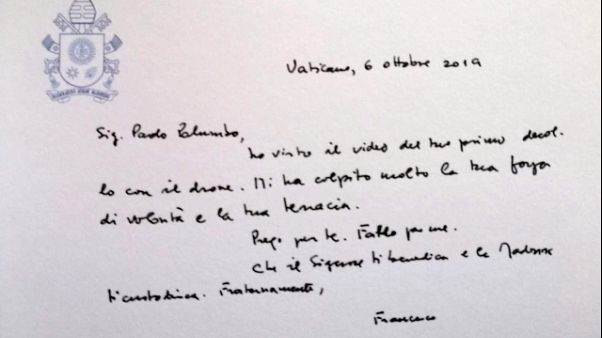 Vaticano, 6 ottobre 2019
Sig. Paolo Palumbo,
ho visto il video del tuo primo decol.
lo con il drone. Mi ha colpito molto la tua forza
di volontà e la tua tenacia.
Prego per te. Fallo per me.
Che il Signore ti benedica e la Madonna
ti custodisca. Fraternamente,
Francesco